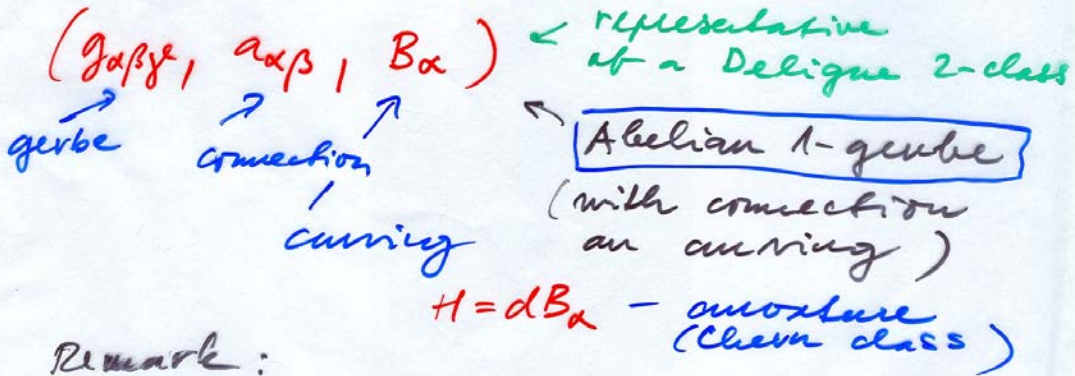 (g_{αβγ}, a_{αβ}, B_α) ← representative
of a Deligne 2-class
gerbe connection / curving
Abelian 1-gerbe
(with connection
an curving)
H = dB_α - curvature
(Chern class)
Remark: